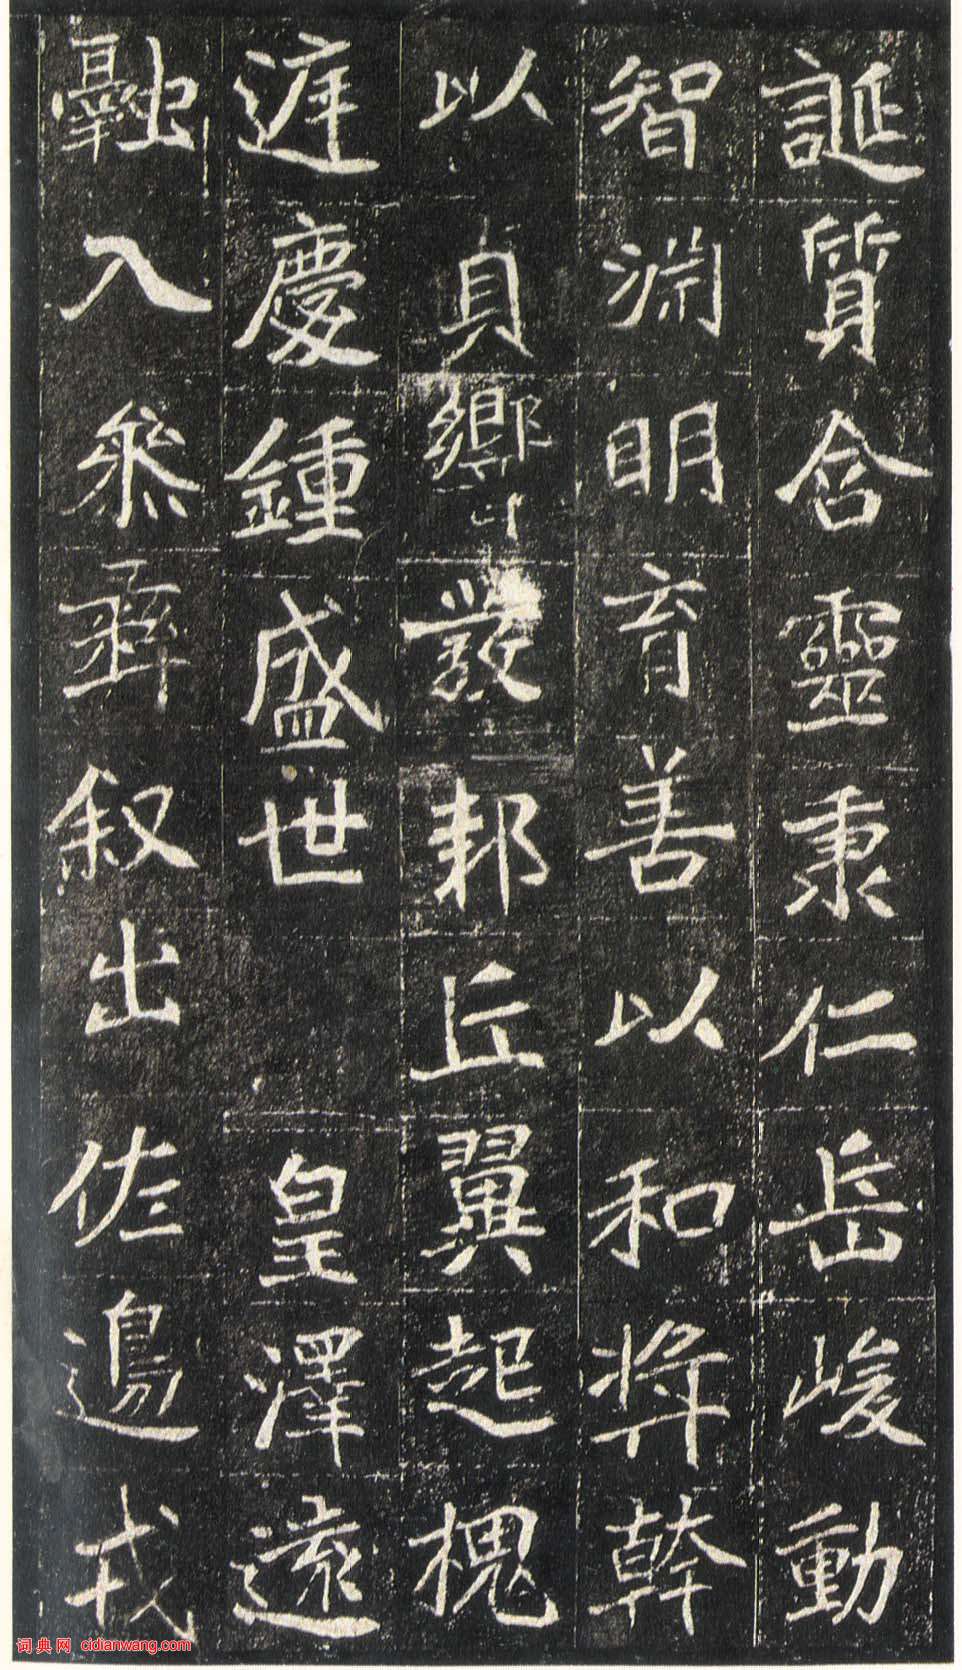 誕質含靈秉仁岳峻動
智淵明育善以和將幹
以貞響發邦丘翼起槐
庭慶鍾盛世皇澤遠
融入叅彝叙出佐邊戎
词典网 cidianwang.com